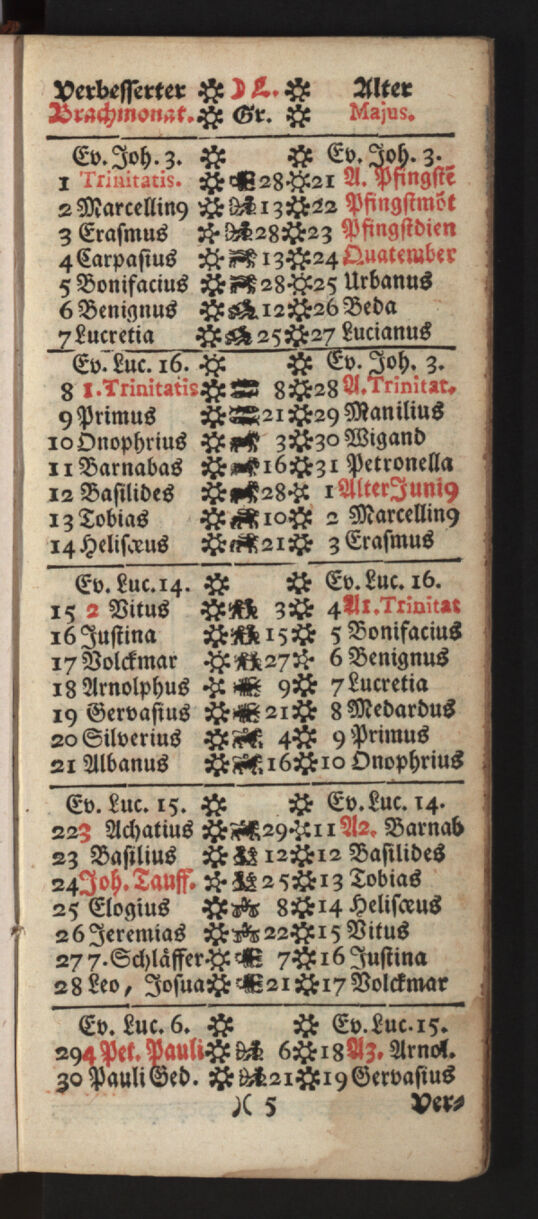 Verbesserter ☽ L. Alter
Brachmonat. Gr. Majus.
Ev. Joh. 3. Ev. Joh. 3.
1 Trinitatis. 28 21 A. Pfingstē
2 Marcellin9 13 22 Pfingstmõt
3 Erasmus 28 23 Pfingstdien
4 Carpasius 13 24 Quatember
5 Bonifacius 28 25 Urbanus
6 Benignus 12 26 Beda
7 Lucretia 25 27 Lucianus
Ev. Luc. 16. Ev. Joh. 3.
8 1. Trinitatis 8 28 A. Trinitat.
9 Primus 21 29 Manilius
10 Onophrius 3 30 Wigand
11 Barnabas 16 31 Petronella
12 Basilides 28 1 Alter Juni9
13 Tobias 10 2 Marcellin9
14 Helisæus 21 3 Erasmus
Ev. Luc. 14. Ev. Luc. 16.
15 2 Vitus 3 4 A1. Trinitat
16 Justina 15 5 Bonifacius
17 Volckmar 27 6 Benignus
18 Arnolphus 9 7 Lucretia
19 Gervasius 21 8 Medardus
20 Silverius 4 9 Primus
21 Albanus 16 10 Onophrius
Ev. Luc. 15. Ev. Luc. 14.
22 3 Achatius 29 11 A2. Barnab
23 Basilius 12 12 Basilides
24 Joh. Tauff. 25 13 Tobias
25 Elogius 8 14 Helisæus
26 Jeremias 22 15 Vitus
27 7. Schläffer 7 16 Justina
28 Leo, Josua 21 17 Volckmar
Ev. Luc. 6. Ev. Luc. 15.
29 4 Pet. Pauli 6 18 A3. Arnol.
30 Pauli Ged. 21 19 Gervasius
)( 5 Ver-